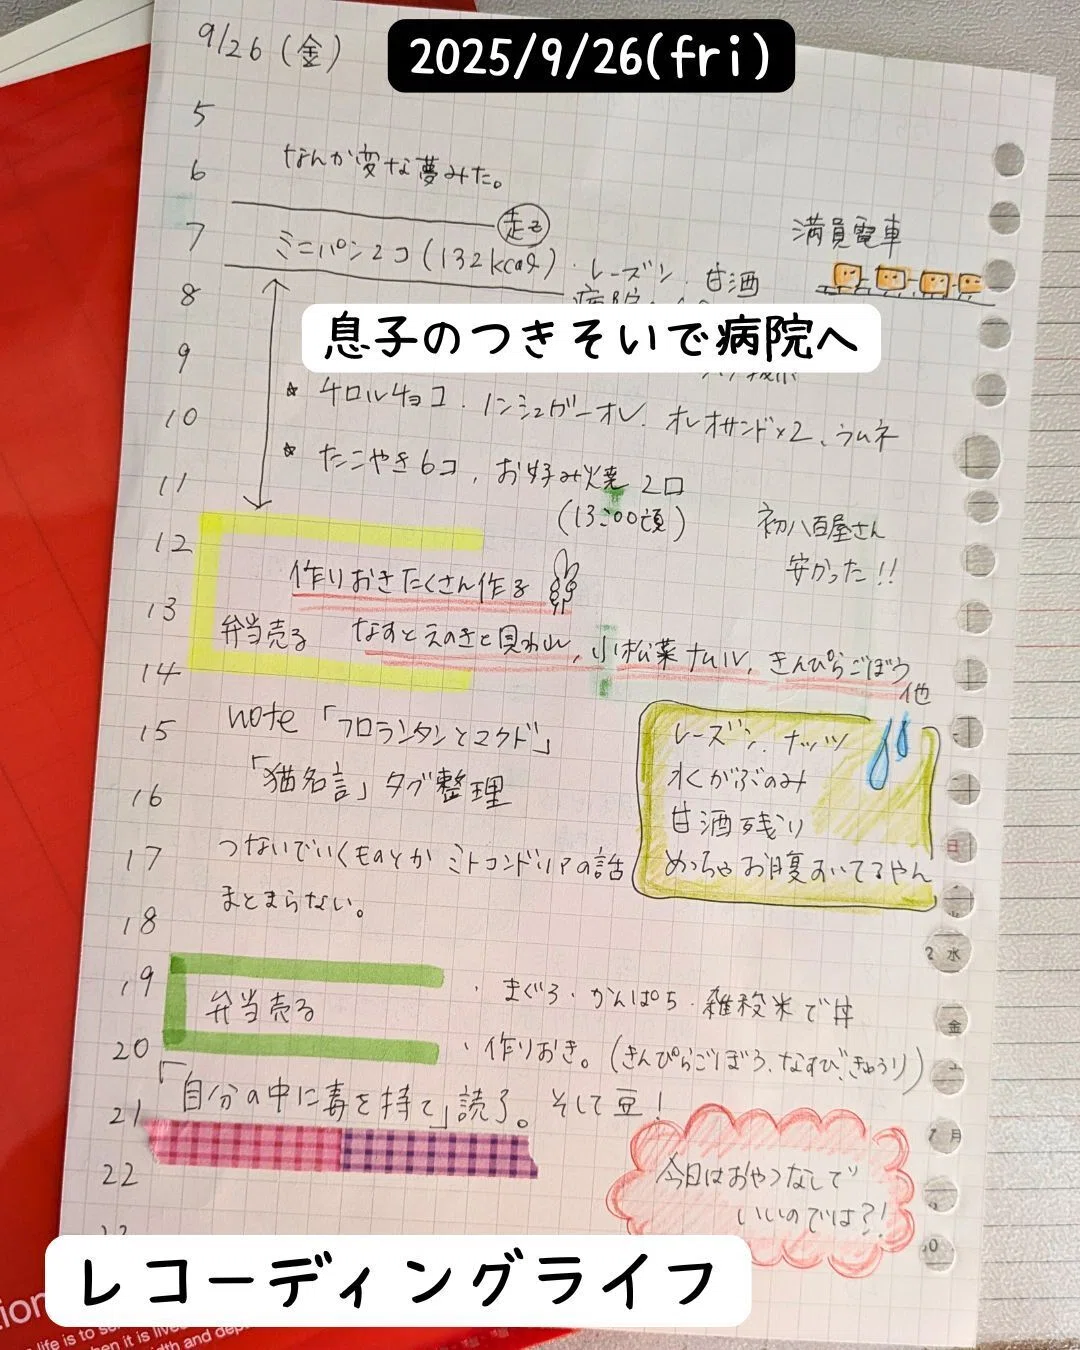 9/26(金)
2025/9/26(fri)
5
6 なんか変な夢みた。
走る
満員電車
7 ミニパン2コ(132kcal)・レーズン・甘酒
8 病院
息子のつきそいで病院へ
9
* チロルチョコ・ノンシュガーオレ.オレオサンド×2、ラムネ
10
* たこやき6コ、お好み焼2口
11
(13:00頃)
初八百屋さん
安かった!!
12
作りおきたくさん作る
13
弁当売る なすとえのきと貝われ、小松菜ナムル、きんぴらごぼう
他
14
15 note「フロランタンとマクド」
16 「猫名言」タグ整理
レーズン.ナッツ
水がぶのみ
甘酒残り
めっちゃお腹すいてるやん
17 つないでいくものとか ミトコンドリアの話
まとまらない。
18
19 弁当売る
・まぐろ・かんぱち・雑穀米で丼
20 ・作りおき。(きんぴらごぼう、なすび、きゅうり)
21 「自分の中に毒を持て」読了。そして豆!
22
今日はおやつなしで
いいのでは?!
レコーディングライフ
日
2 水
金
7 月
tion
life is to
when it is
width and